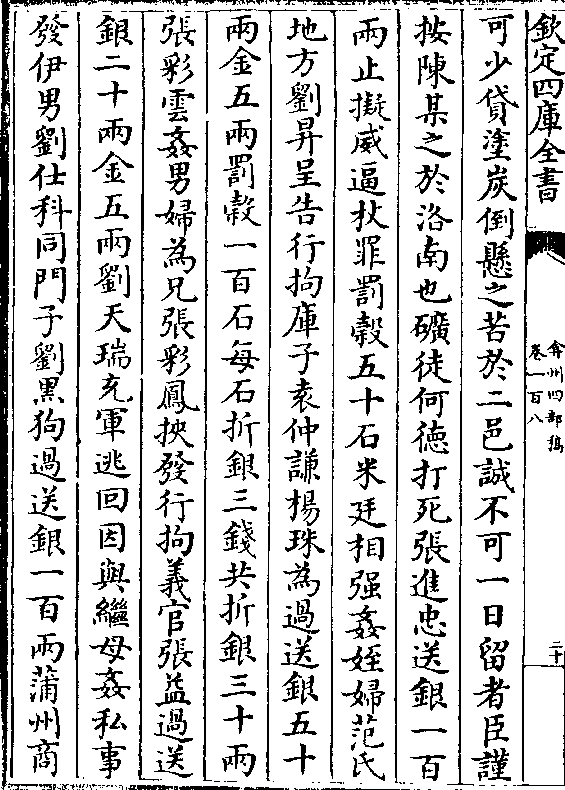 欽定四庫全書
弇州四部稿
卷一百八
二十
可少貸塗炭倒懸之苦於二邑誠不可一日留者臣謹
按陳某之於洛南也礦徒何徳打死張進忠送銀一百
兩止擬威逼杖罪罰榖五十石米廷相强姦姪婦范氏
地方劉昇呈告行拘庫子袁仲謙楊珠為過送銀五十
兩金五兩罰榖一百石每石折銀三錢共折銀三十兩
張彩雲姦男婦為兄張彩鳳抰發行拘義官張益過送
銀二十兩金五兩劉天瑞充軍逃回因與繼母姦私事
發伊男劉仕科同門子劉黒狗過送銀一百兩蒲州商